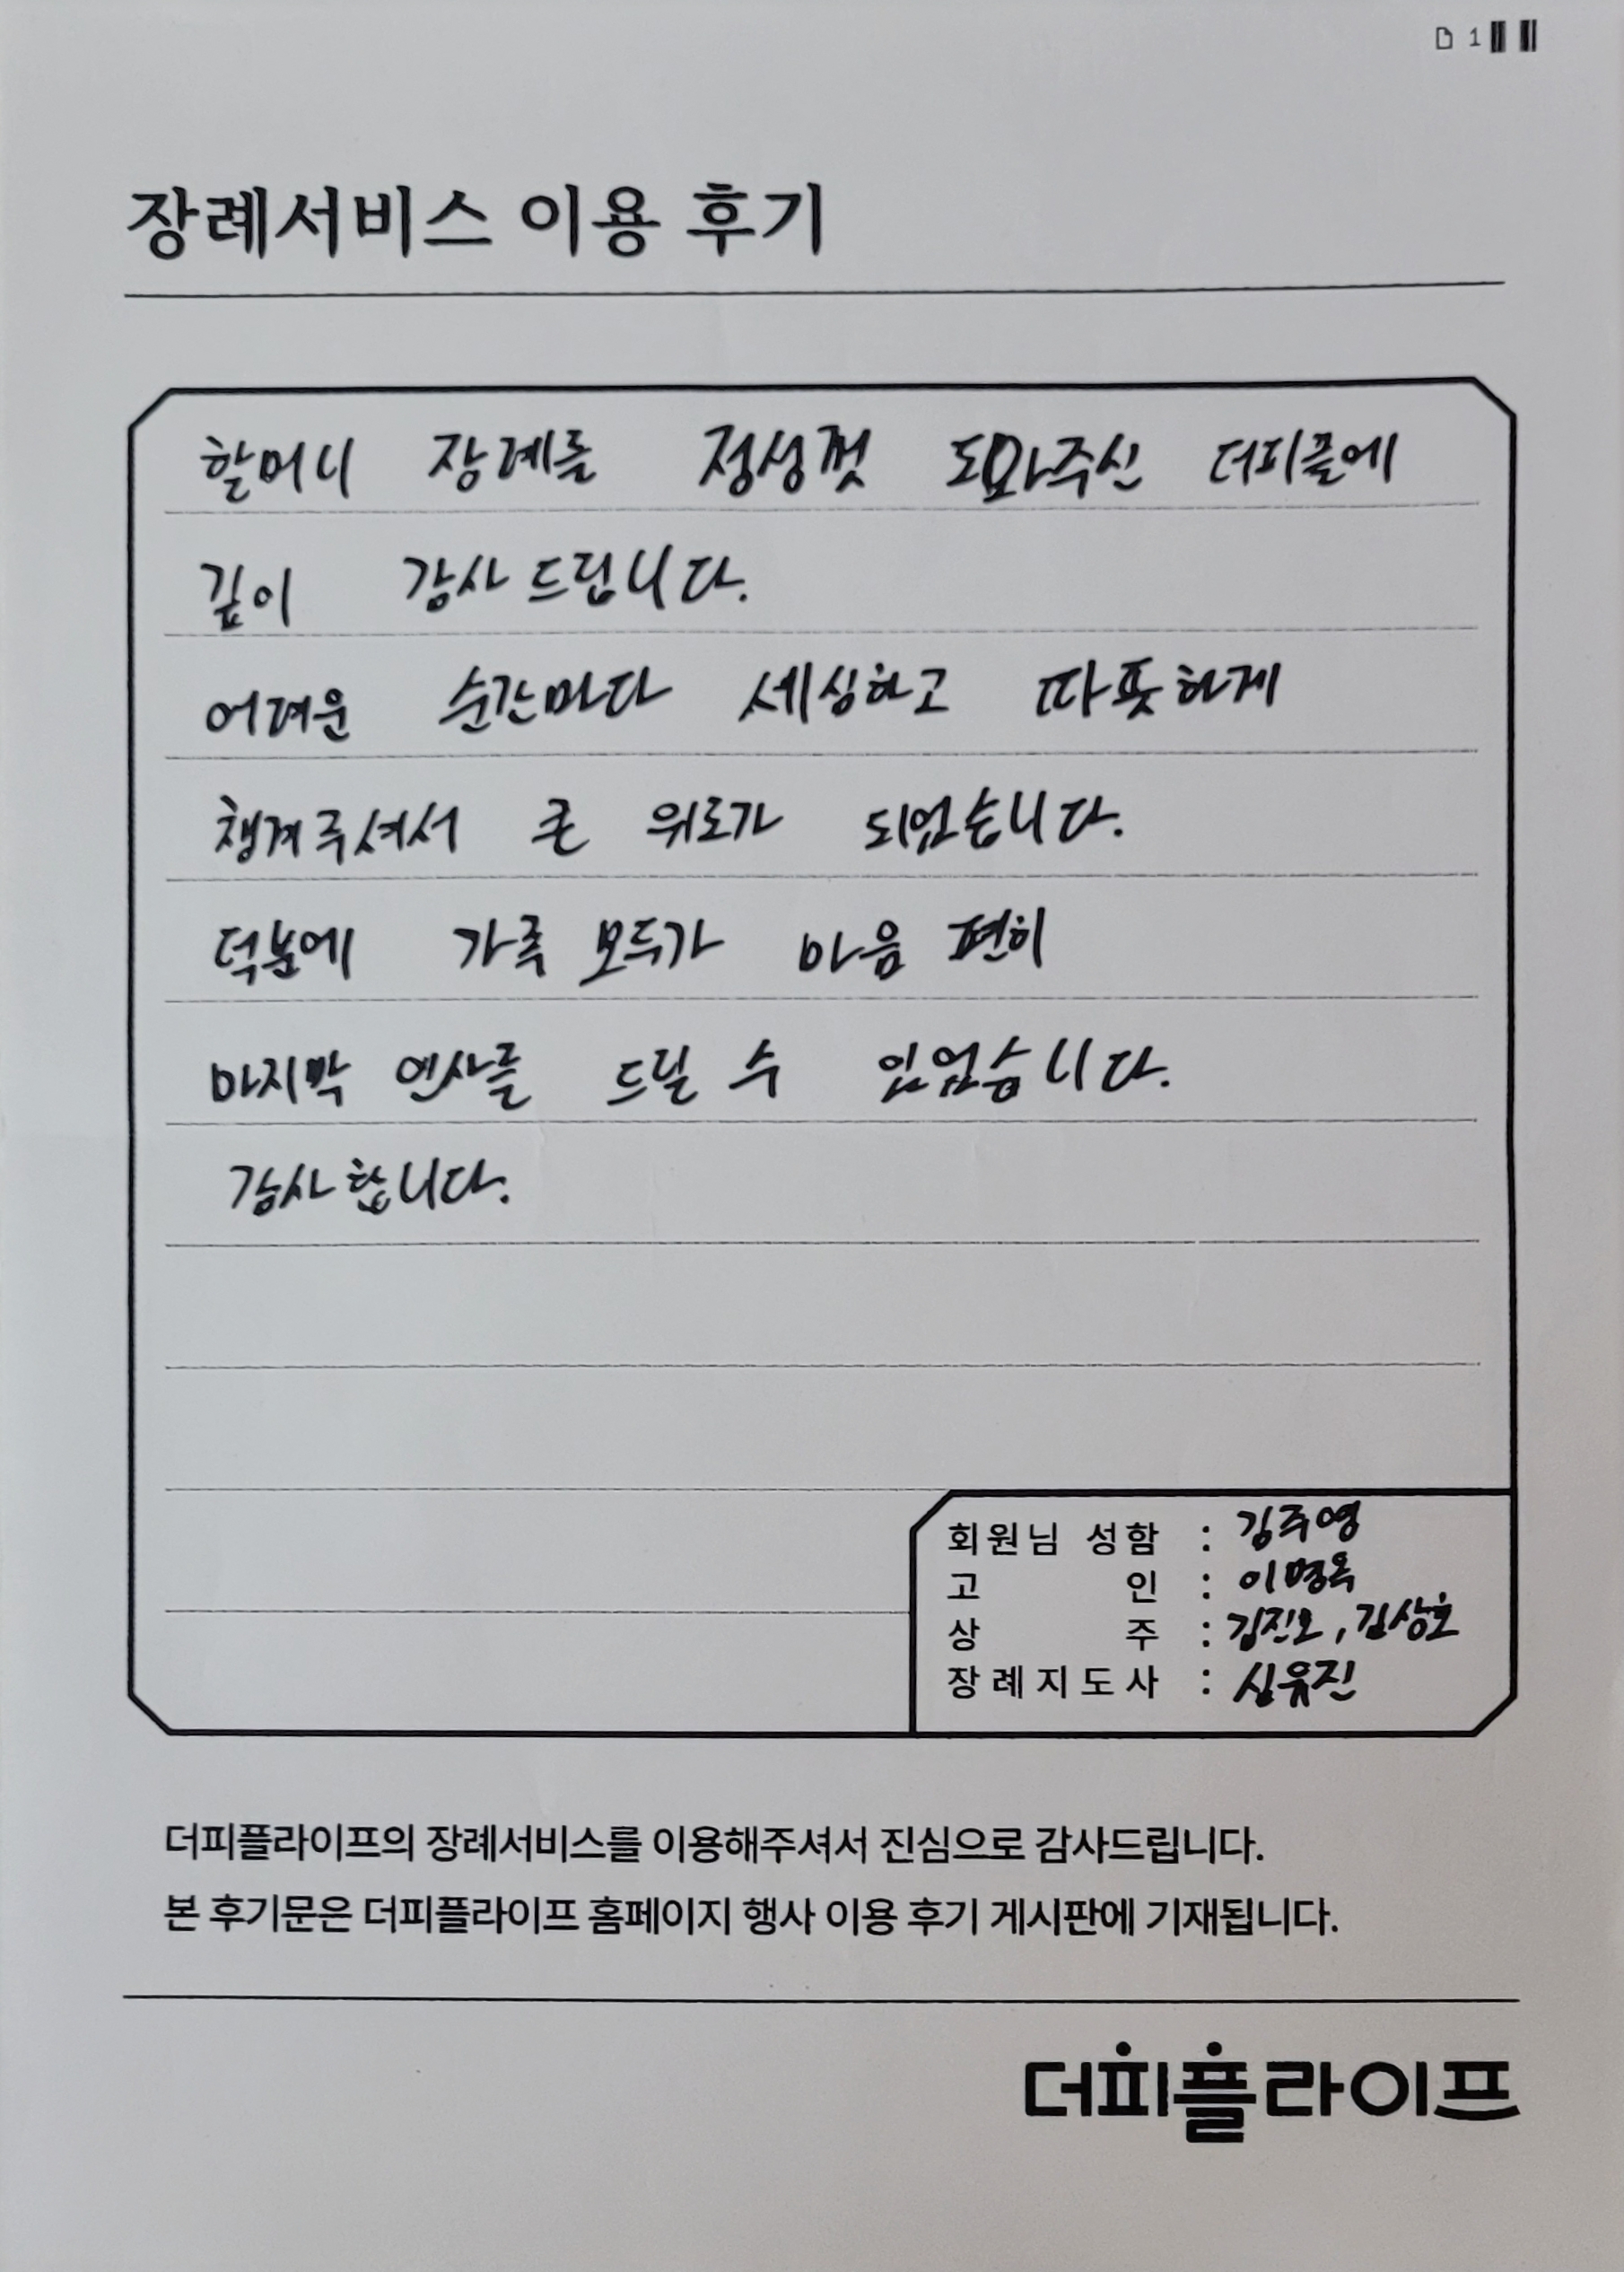 장례서비스 이용 후기
할머니 장례를 정성껏 도와주신 더피플에
깊이 감사드립니다.
어려운 순간마다 세심하고 따뜻하게
챙겨주셔서 큰 위로가 되었습니다.
덕분에 가족 모두가 마음 편히
마지막 인사를 드릴 수 있었습니다.
감사합니다.
회원님 성함 : 김주영
고 인 : 이명옥
상 주 : 김진오, 김상호
장례지도사 : 심유진
더피플라이프의 장례서비스를 이용해주셔서 진심으로 감사드립니다.
본 후기문은 더피플라이프 홈페이지 행사 이용 후기 게시판에 기재됩니다.
더피플라이프